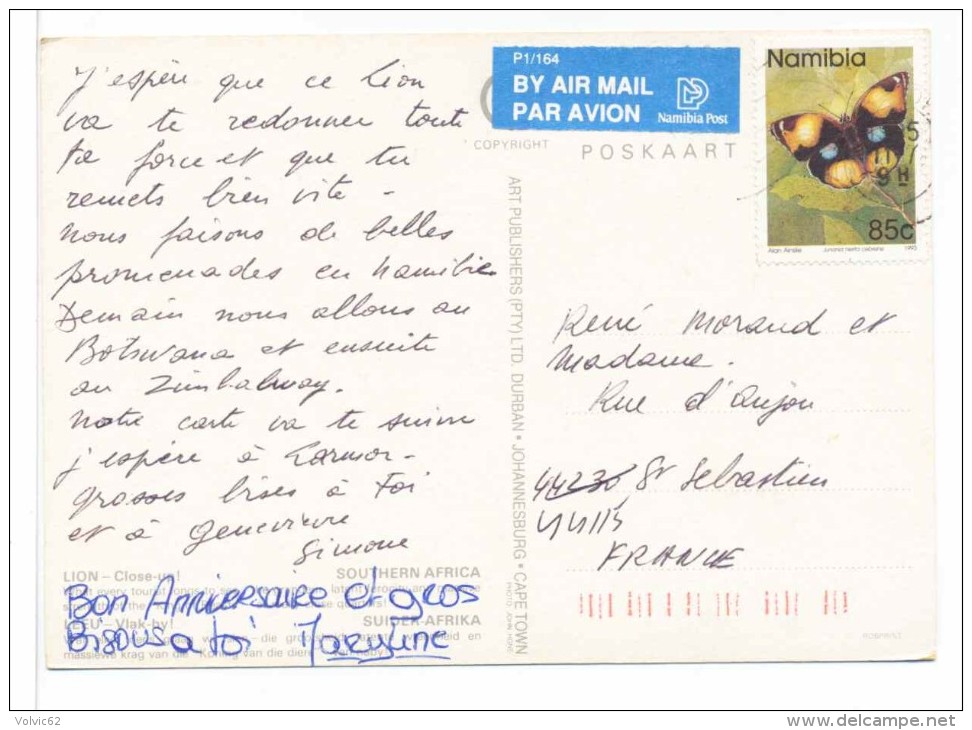 J'espère que ce Lion
va te redonner toute
ta force et que tu
remets bien vite -
nous faisons de belles
promenades en Namibie
Demain nous allons au
Botswana et ensuite
au Zimbabway.
Notre carte va te suivre
j'espère à Larmor -
grosses bises à toi
et à Genevieve
Simone
LION – Close-up!
SOUTHERN AFRICA
LEEU – Vlak-by!
SUIDER-AFRIKA
Bon Anniversaire et gros
Bisous a toi Maryline
P1/164
BY AIR MAIL
PAR AVION
Namibia Post
COPYRIGHT
POSKAART
ART PUBLISHERS (PTY) LTD. DURBAN • JOHANNESBURG • CAPE TOWN
Namibia
85c
1993
9 H
René Morand et
Madame.
Rue d'Anjou
44230 St Sebastien
44115
FRANCE
Volvic62
delcampe.net